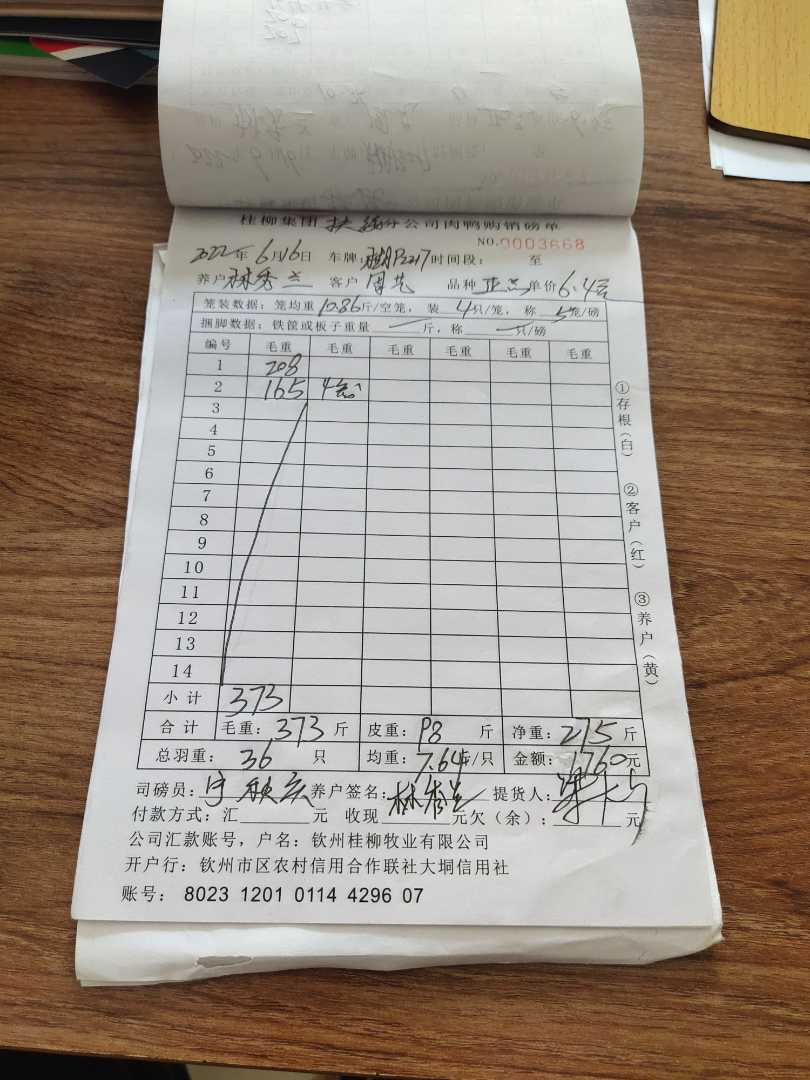 桂柳集团 扶绥 分公司肉鸭购销磅单
NO.0003668
2022年6月16日 车牌: P2217 时间段: 至
养户 林秀兰 客户 周艺 品种 单价 6.4
笼装数据: 笼均重 10.86 斤/空笼, 装 4 只/笼, 称 5 笼/磅
捆脚数据: 铁筐或板子重量 — 斤, 称 — 只/磅
编号 毛重 毛重 毛重 毛重 毛重 毛重
1 208
2 165 4
3
4
5
6
7
8
9
10
11
12
13
14
小计 373
合计 毛重: 373 斤 皮重: 98 斤 净重: 275 斤
总羽重: 36 只 均重: 7.64 斤/只 金额: 1760 元
司磅员: 养户签名: 林秀兰 提货人:
付款方式: 汇 元 收现 元欠(余): 元
公司汇款账号, 户名: 钦州桂柳牧业有限公司
开户行: 钦州市区农村信用合作联社大垌信用社
账号: 8023 1201 0114 4296 07
①存根(白) ②客户(红) ③养户(黄)